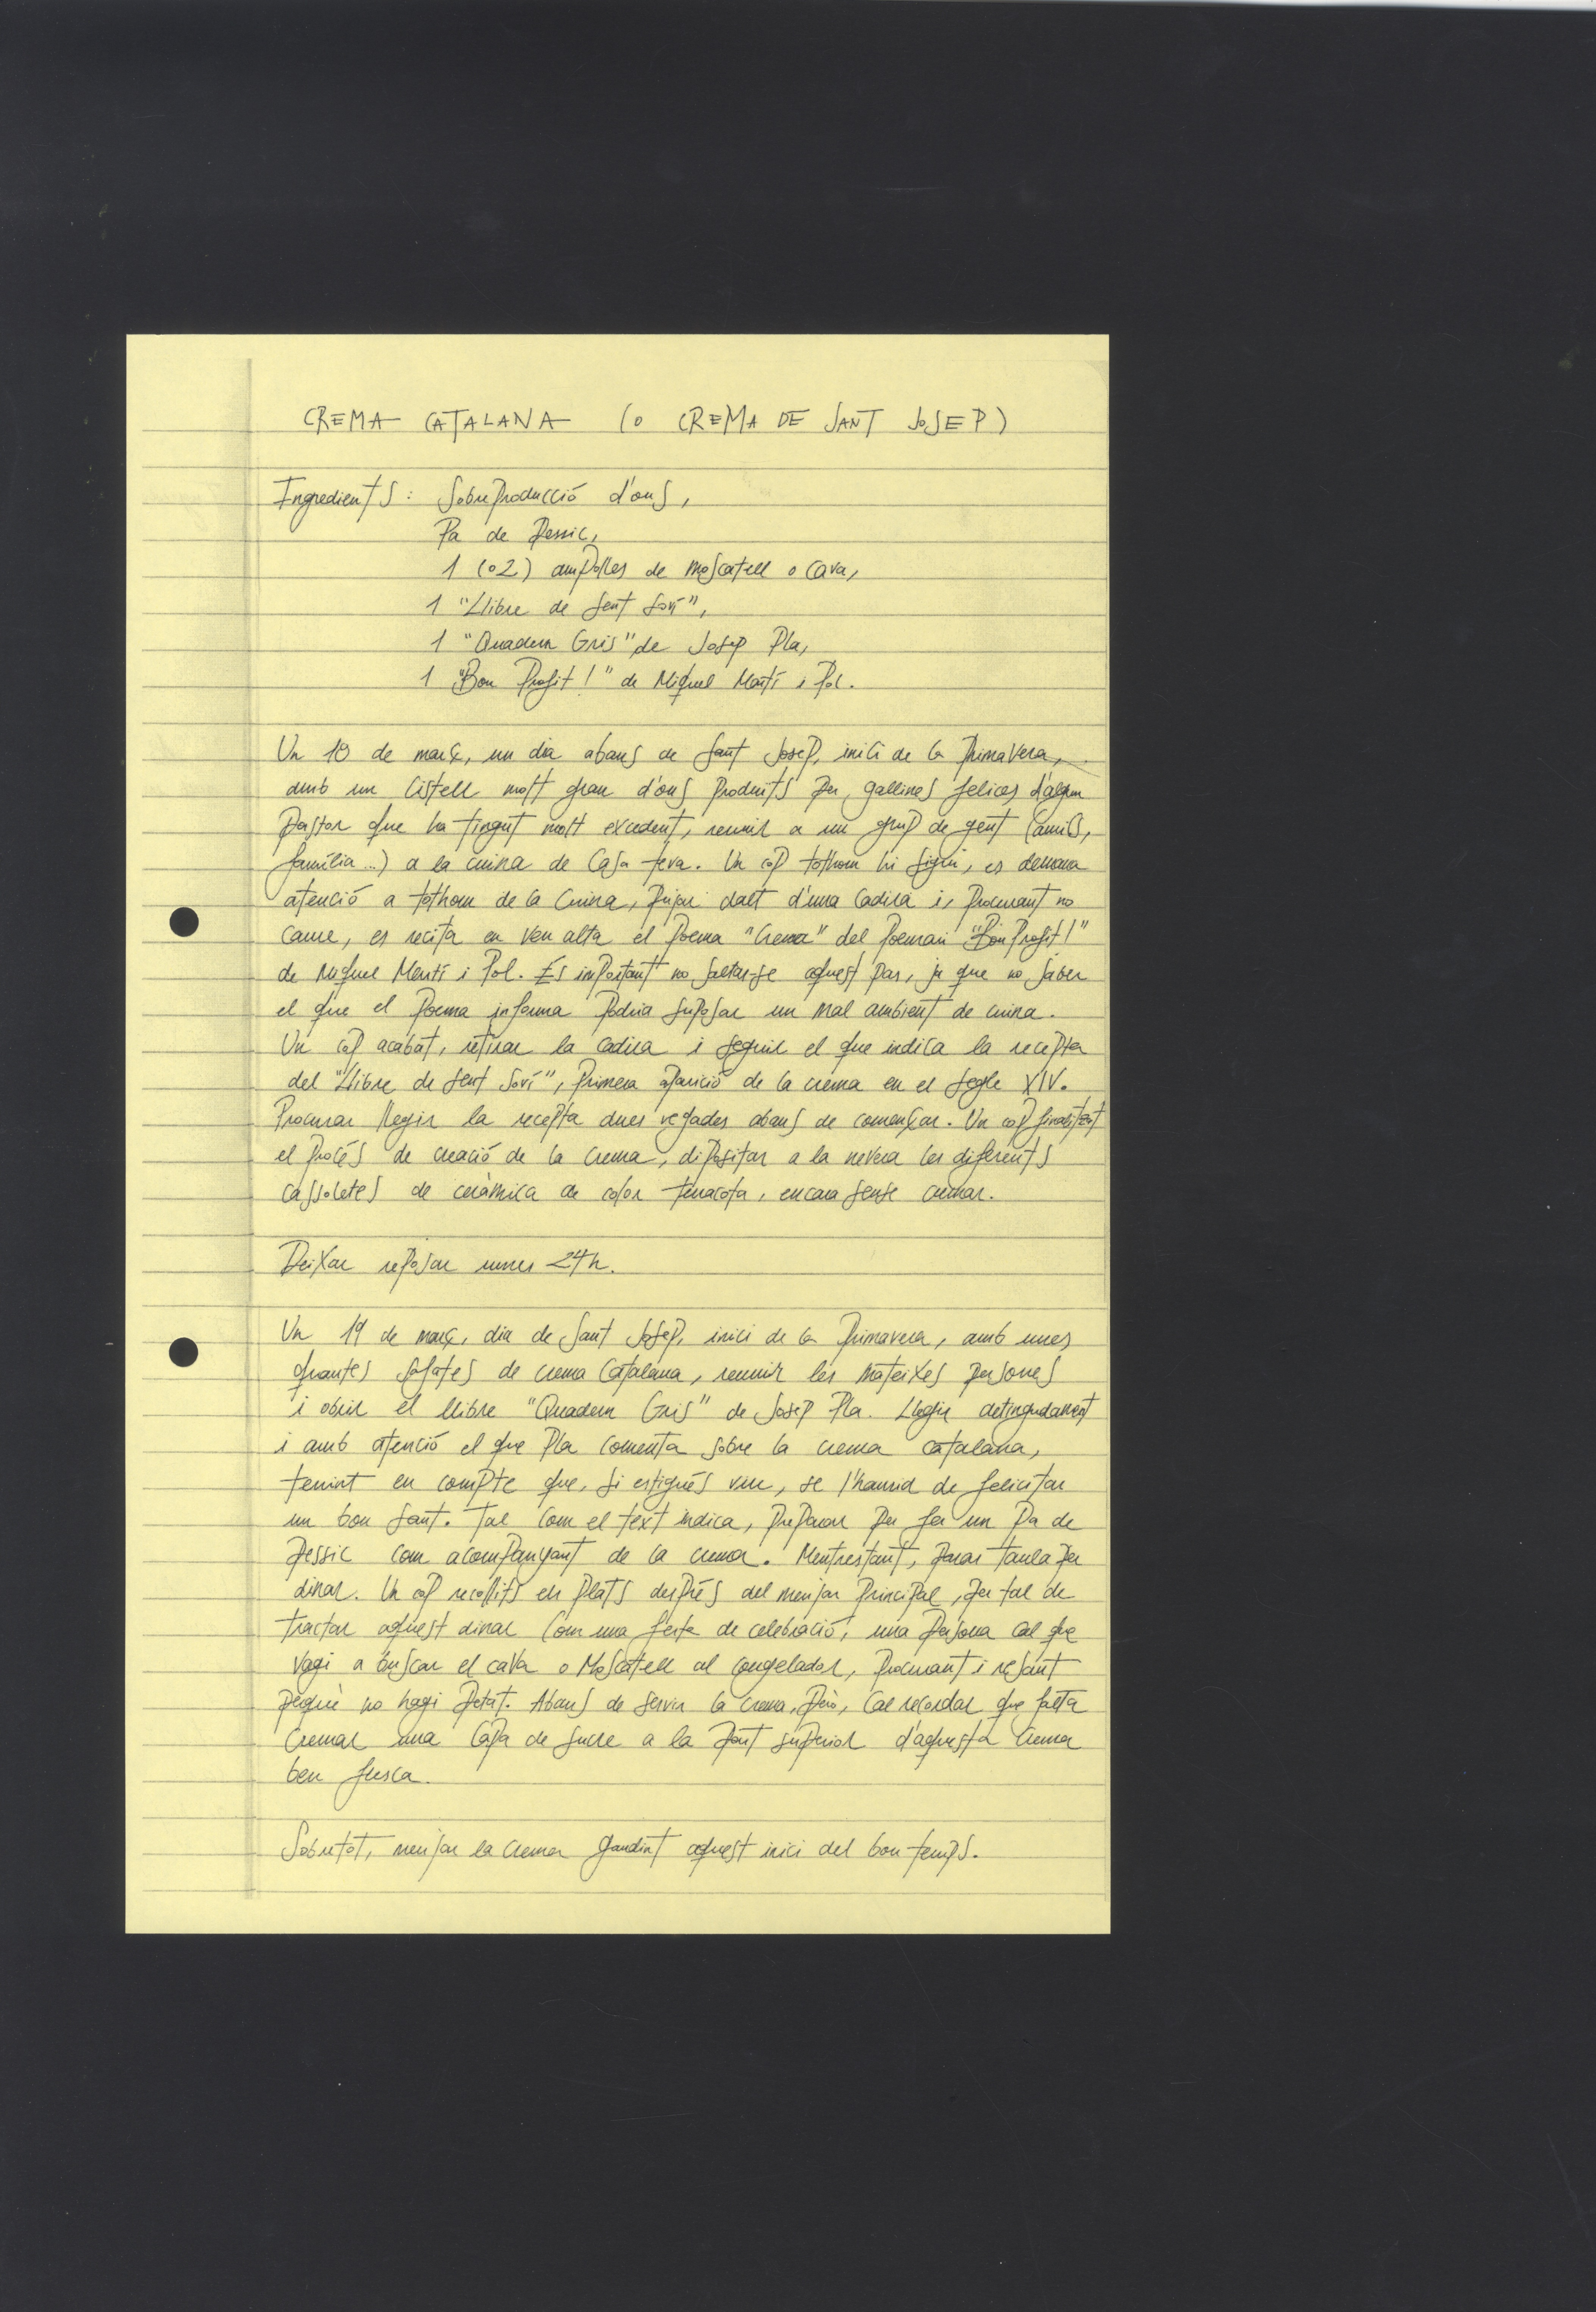 CREMA CATALANA (o CREMA DE SANT JOSEP)
Ingredients: Sobreproducció d'ous,
Pa de pessic,
1 (o 2) ampolles de moscatell o cava,
1 "Llibre de Sent Soví",
1 "Quadern Gris" de Josep Pla,
1 "Bon Profit!" de Miquel Martí i Pol.
Un 18 de març, un dia abans de Sant Josep, inici de la primavera,
amb un cistell molt gran d'ous produïts per gallines felices d'algun
pastor que ha tingut molt excedent, reunir a un grup de gent (amics,
família...) a la cuina de casa teva. Un cop tothom hi sigui, es demana
atenció a tothom de la cuina, pujar dalt d'una cadira i, procurant no
caure, es recita en veu alta el poema "Crema" del poemari "Bon Profit!"
de Miquel Martí i Pol. És important no saltar-se aquest pas, ja que no saber
el que el poema informa podria suposar un mal ambient de cuina.
Un cop acabat, retirar la cadira i seguir el que indica la recepta
del "Llibre de Sent Soví", primera aparició de la crema en el segle XIV.
Procurar llegir la recepta dues vegades abans de començar. Un cop finalitzat
el procés de creació de la crema, dipositar a la nevera les diferents
cassoletes de ceràmica de color terracota, encara sense cremar.
Deixar reposar unes 24h.
Un 19 de març, dia de Sant Josep, inici de la primavera, amb unes
quantes safates de crema catalana, reunir les mateixes persones
i obrir el llibre "Quadern Gris" de Josep Pla. Llegir detingudament
i amb atenció el que Pla comenta sobre la crema catalana,
tenint en compte que, si estigués viu, se l'hauria de felicitar
un bon sant. Tal com el text indica, preparar per fer un pa de
pessic com acompanyant de la crema. Mentrestant, parar taula per
dinar. Un cop recollits els plats després del menjar principal, per tal de
tractar aquest dinar com una festa de celebració, una persona cal que
vagi a buscar el cava o moscatell al congelador, procurant i resant
perquè no hagi petat. Abans de servir la crema, però, cal recordar que falta
cremar una capa de sucre a la part superior d'aquesta crema
ben fresca.
Sobretot, menjar la crema gaudint aquest inici del bon temps.